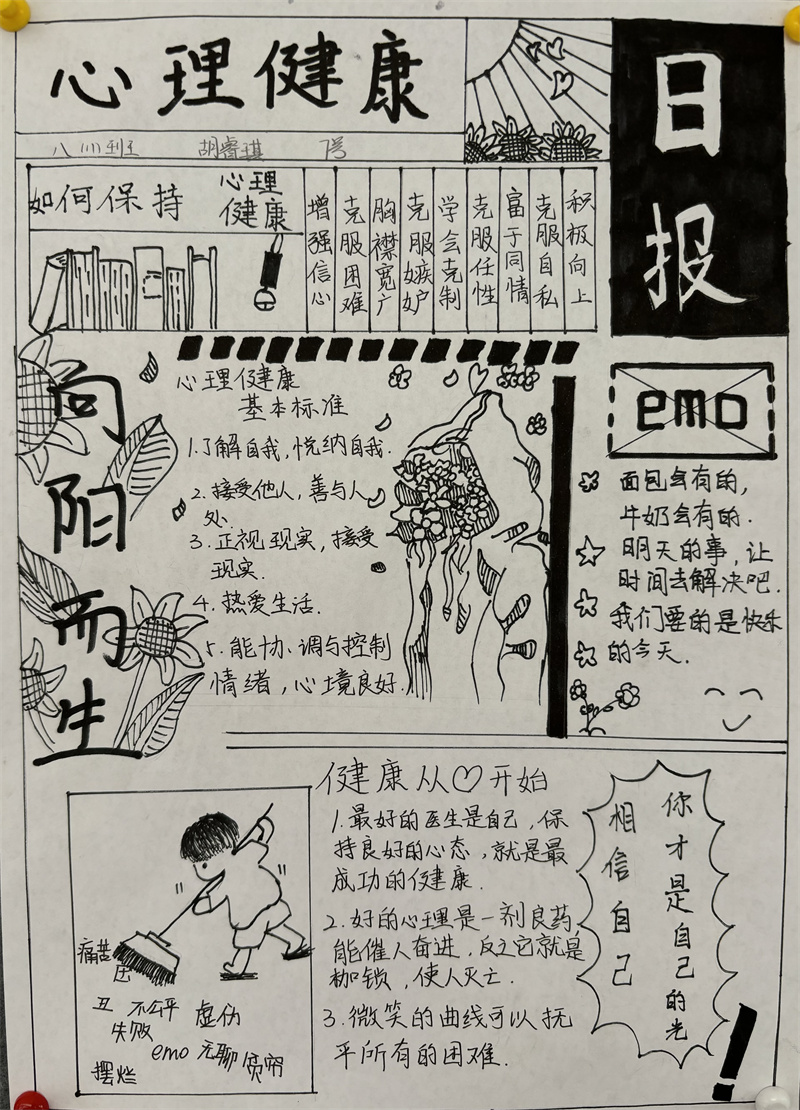 心理健康
日报
八(11)班 胡睿琪 7号
如何保持
心理
健康
增强信心
克服困难
胸襟宽广
克服嫉妒
学会克制
克服任性
富于同情
克服自私
积极向上
向阳而生
心理健康
基本标准
1.了解自我,悦纳自我.
2.接受他人,善与人
处.
3.正视现实,接受
现实.
4.热爱生活.
5.能协调与控制
情绪,心境良好.
emo
面包会有的,
牛奶会有的.
明天的事,让
时间去解决吧.
我们要的是快乐
的今天.
健康从♡开始
1.最好的医生是自己,保
持良好的心态,就是最
成功的健康.
2.好的心理是一剂良药,
能催人奋进,反之它就是
枷锁,使人灭亡.
3.微笑的曲线可以抚
平所有的困难.
你才是自己的光
相信自己
!
痛苦
压
丑 不公平 虚伪
失败
emo 无聊 贫穷
摆烂